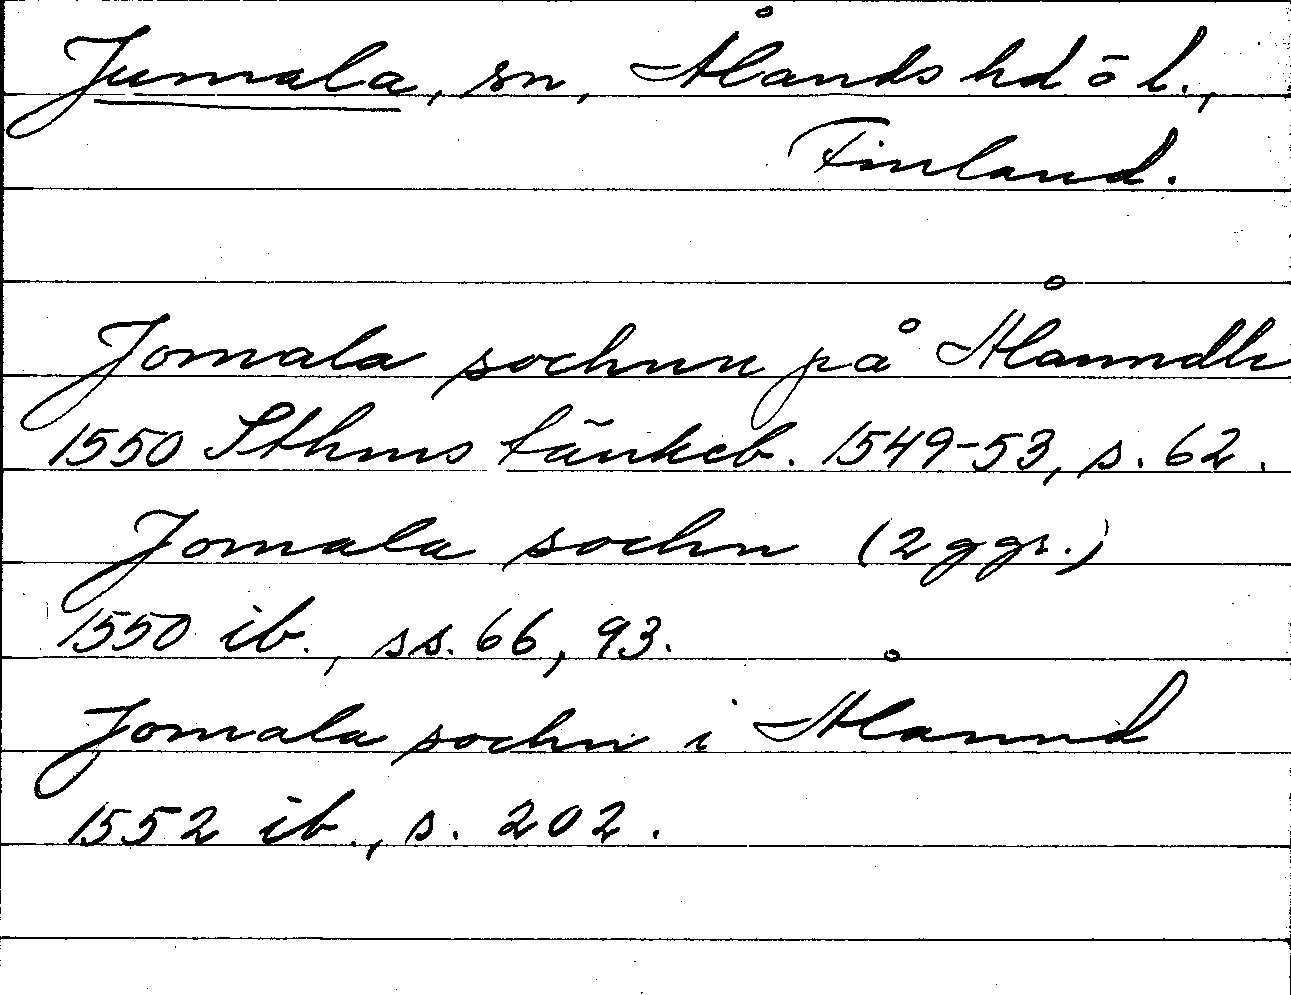 Jumala, sn, Ålands hd ō l.,
Finland.
Jomala sochnn på Ålanndh
1550 Sthms tänkeb. 1549-53, s. 62.
Jomala sochn (2 ggr.)
1550 ib., ss. 66, 93.
Jomala sochn i Ålannd
1552 ib., s. 202.